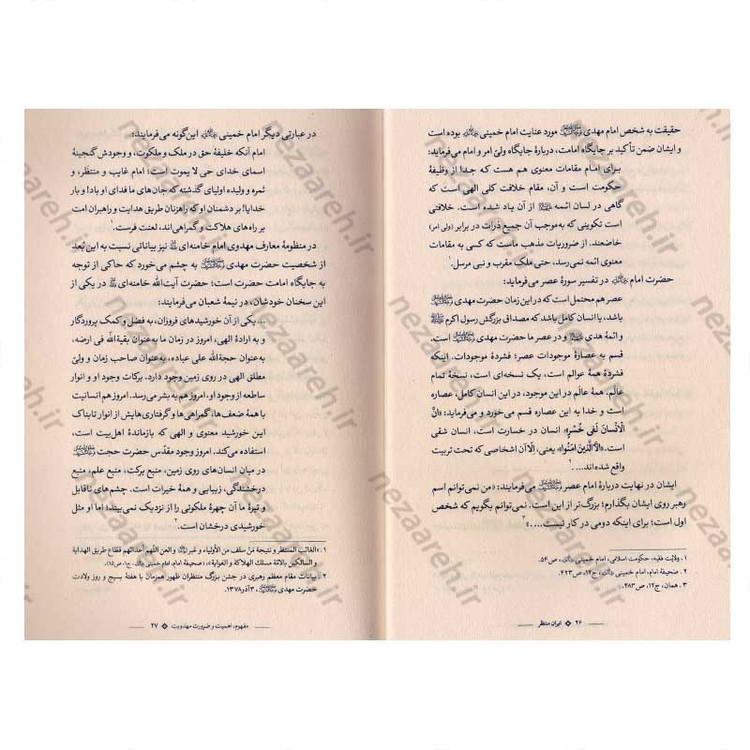 حقیقت به شخص امام مهدی مورد عنایت امام خمینی بوده است
و ایشان ضمن تأکید بر جایگاه امامت، دربارهٔ جایگاه ولیّ امر و امام می‌فرماید:
برای امام مقامات معنوی هم هست که جدا از وظیفهٔ
حکومت است و آن، مقام خلافت کلی الهی است که
گاهی در لسان ائمه از آن یاد شده است. خلافتی
است تکوینی که به‌موجب آن جمیع ذرات در برابر (ولی امر)
خاضعند. از ضروریات مذهب ماست که کسی به مقامات
معنوی ائمه نمی‌رسد، حتی ملک مقرب و نبی مرسل.۱
حضرت امام در تفسیر سورهٔ عصر می‌فرماید:
عصر هم محتمل است که در این زمان حضرت مهدی
باشد، یا انسان کامل باشد که مصداق بزرگش رسول اکرم
و ائمهٔ هدی و در عصر ما حضرت مهدی است.
قسم به عصارهٔ موجودات عصر؛ فشردهٔ موجودات. اینکه
فشردهٔ همهٔ عوالم است، یک نسخه‌ای است، نسخهٔ تمام
عالَم. همهٔ عالَم در این موجود، در این انسان کامل، عصاره
است و خدا به این عصاره قسم می‌خورد و می‌فرماید: «اِنَّ
الْاِنْسانَ لَفی خُسْرٍ» انسان در خسارت است، انسان شقی
است. «اِلَّا الَّذینَ آمَنُوا» یعنی، الّا آن اشخاصی که تحت تربیت
واقع شده‌اند....۲
ایشان در نهایت دربارهٔ امام عصر می‌فرمایند: «من نمی‌توانم اسم
رهبر روی ایشان بگذارم؛ بزرگ‌تر از این است. نمی‌توانم بگویم که شخص
اول است؛ برای اینکه دومی در کار نیست....»۳
۱. ولایت فقیه، حکومت اسلامی، امام خمینی، ص۵۴.
۲. صحیفهٔ امام، امام خمینی، ج۱۲، ص۴۲۳.
۳. همان، ج۱۲، ص۴۸۳.
۲۶ ایران منتظر
در عبارتی دیگر امام خمینی این‌گونه می‌فرمایند:
امام آنکه خلیفهٔ حق در ملک و ملکوت، و وجودش گنجینهٔ
اسمای خدای حی لا یموت است؛ امام غایب و منتظَر، و
ثمره و ولیدهٔ اولیای گذشته که جان‌های ما فدای او باد! و بار
خدایا! بر دشمنان او که راهزنان طریق هدایت و راهبران امت
بر راه‌های هلاکت و گمراهی اند، لعنت فرست.۱
در منظومهٔ معارف مهدوی امام خامنه‌ای نیز بیاناتی نسبت به این بُعد
از شخصیت حضرت مهدی به چشم می‌خورد که حاکی از توجه
به جایگاه امامت حضرت است؛ حضرت آیت‌الله خامنه‌ای در یکی از
این سخنان خودشان، در نیمهٔ شعبان می‌فرمایند:
... یکی از آن خورشیدهای فروزان، به فضل و کمک پروردگار
و به ارادهٔ الهی، امروز در زمان ما به عنوان بقیة‌الله فی ارضه،
به‌عنوان حجة‌الله علی عباده، به‌عنوان صاحب زمان و ولیّ
مطلق الهی در روی زمین وجود دارد. برکات وجود او و انوار
ساطعه از وجود او، امروز هم به بشر می‌رسد. امروز هم انسانیت
با همهٔ ضعف‌ها، گمراهی‌ها و گرفتاری‌هایش از انوار تابناک
این خورشید معنوی و الهی که بازماندهٔ اهل‌بیت است،
استفاده می‌کند. امروز وجود مقدّس حضرت حجت
در میان انسان‌های روی زمین، منبع برکت، منبع علم، منبع
درخشندگی، زیبایی و همهٔ خیرات است. چشم‌های ناقابل
و تیرهٔ ما آن چهرهٔ ملکوتی را از نزدیک نمی‌بیند؛ اما او مثل
خورشیدی درخشان است.۲
۱. «الغائب المنتظر و نتیجة مَن سلف من الأولیاء و العن اللّهم أعدائهم قطّاع طریق الهدایة
و السالکین بالامّة مسلک الهلاکة و الغوایة»؛ (صحیفهٔ امام، امام خمینی، ج۱، ص۱۵).
۲. بیانات مقام معظم رهبری در جشن بزرگ منتظران ظهور همزمان با هفتهٔ بسیج و روز ولادت
حضرت مهدی، ۳آذر۱۳۷۸.
مفهوم، اهمیت و ضرورت مهدویت ۲۷
nezaareh.ir